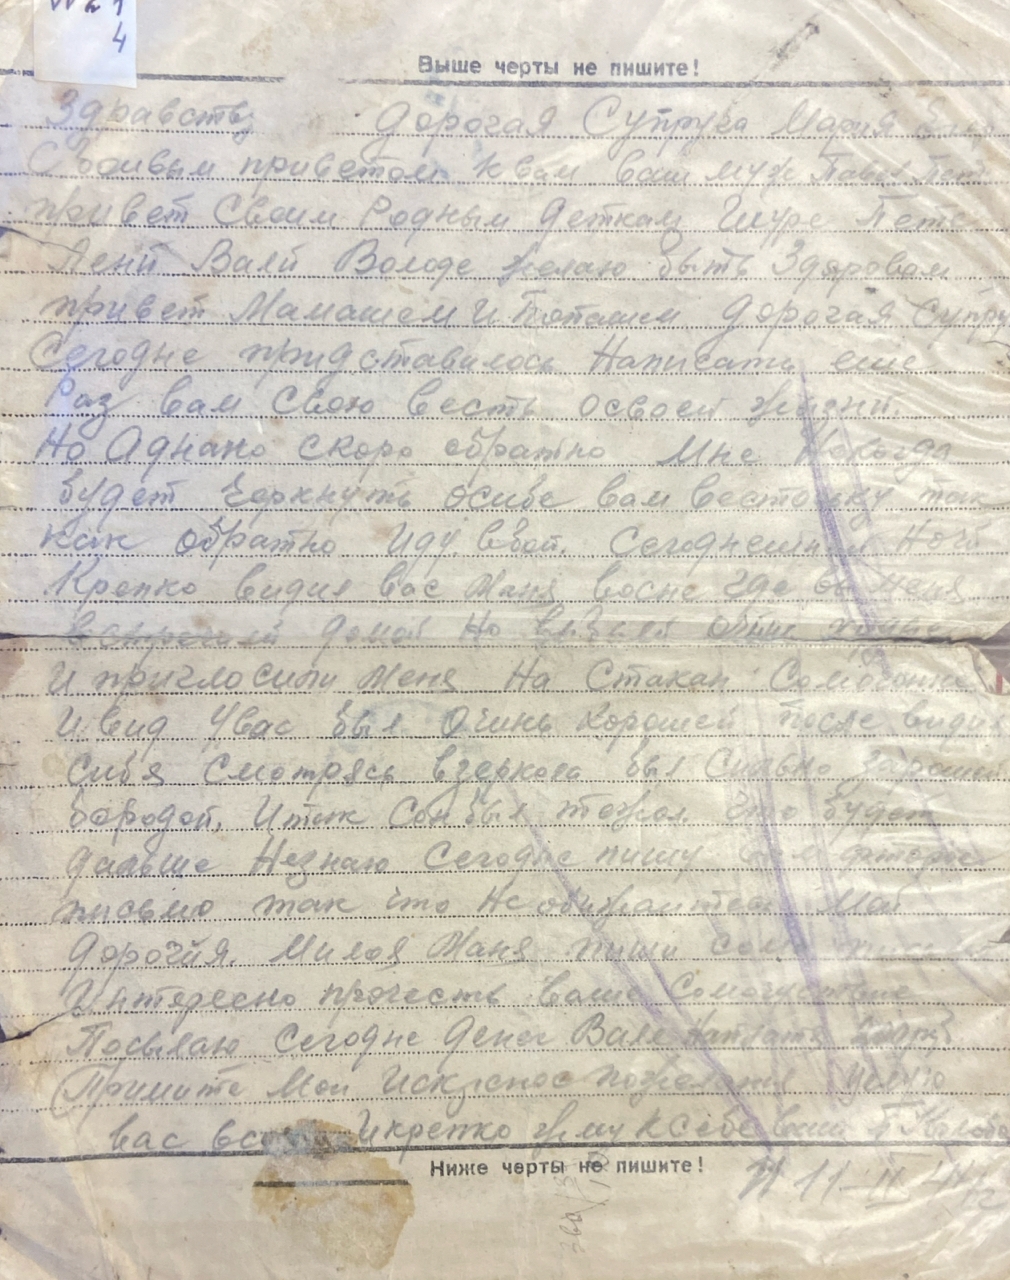 4
Выше черты не пишите!
Здравству Дорогая Супруга Мария
С боивым приветом к вам ваш муж Павел
привет Своим Родным деткам Шуре Пете
Лени Вали Володе желаю быть Здаровам
привет Мамашем и Поташем Дорогая Супру
Сегодне придставилось Написать еще
Раз вам свою весть освоей жизни.
Но Аднако скоро обратно мне Некогда
будет Черкнуть осибе вам весточку так
как обратно иду вбой. Сегоднешней Ночи
Крепко видил вас Маня восне где вы меня
встречали домой но
И приглосили Меня На Стакан
И вид Увас был Очинь хорошей после видил
сибя Смотрясь взеркола был Сильно
бородой. Итак Сон был таков. Что будет
дальше Незнаю Сегодне пишу второе
письмо так что Не обижаитесь Мои
Дорогия. Милоя Маня пиши
Интересно прочесть Ваше
Посылаю Сегодне Денег Вале
Примите Мои Искренное пожелания целую
вас всех Икрепко жму Ксебе ваш П
Ниже черты не пишите!
11-II 44 г